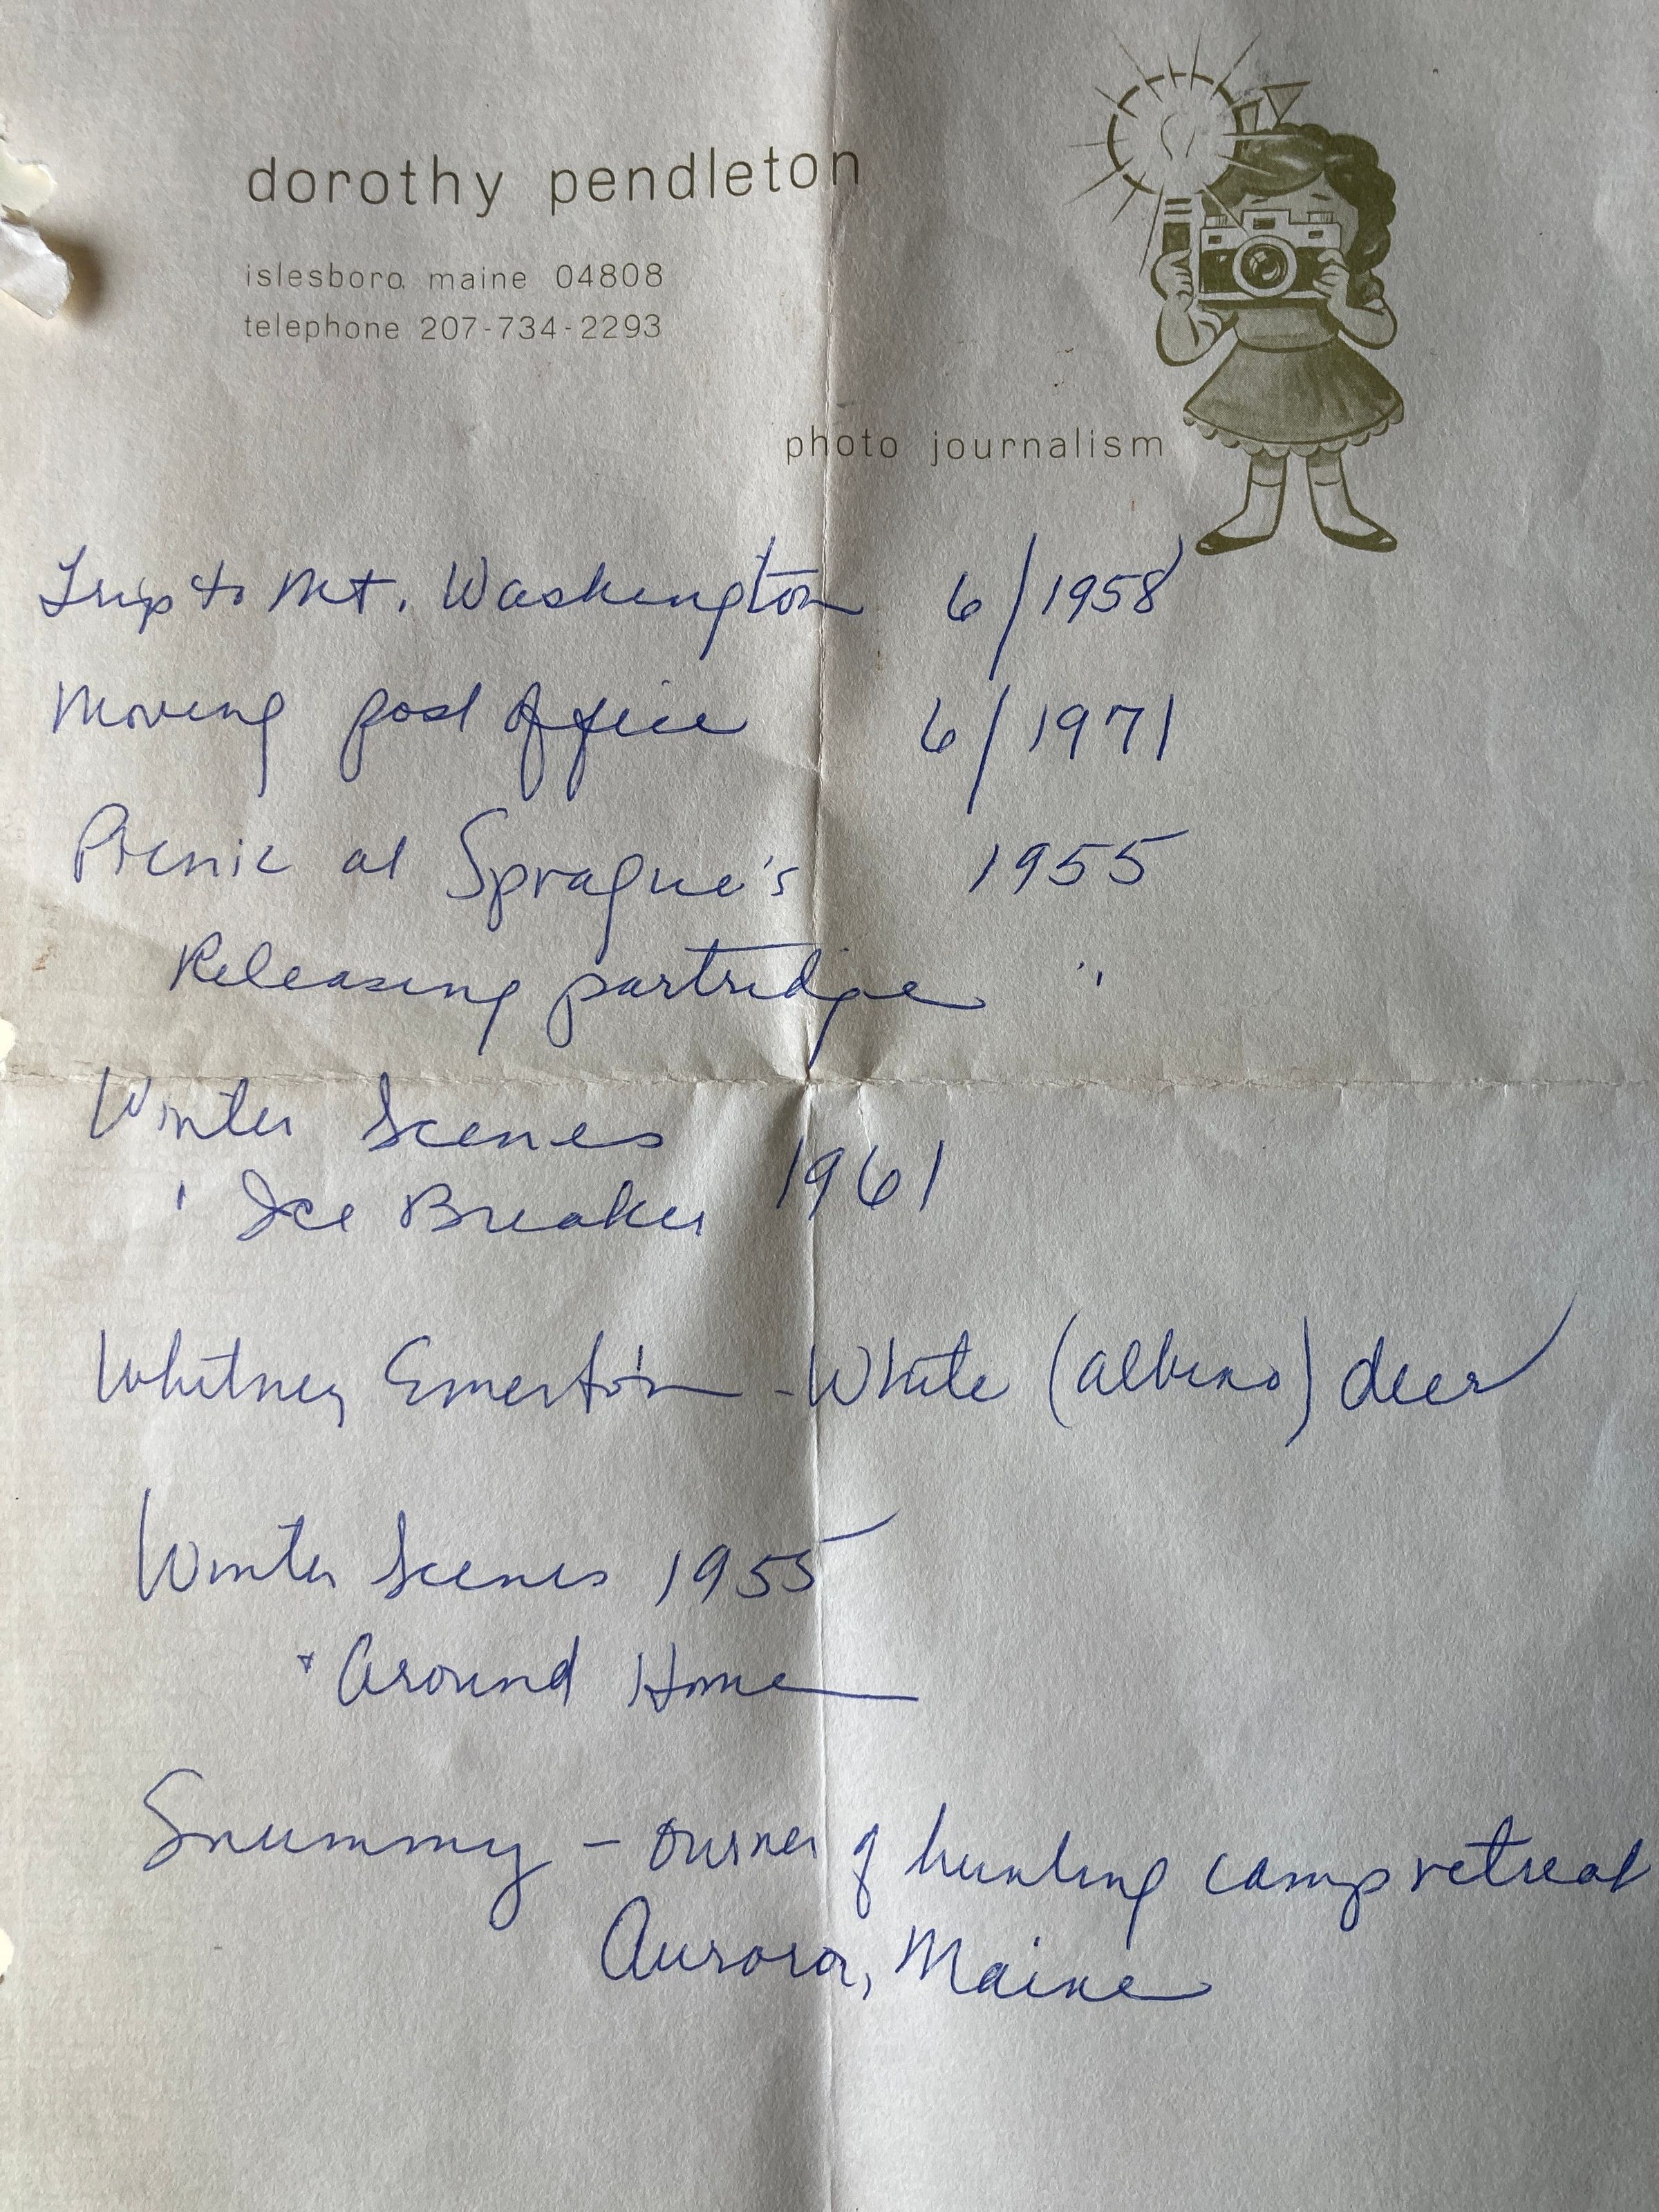 dorothy pendleton
islesboro maine 04808
telephone 207-734-2293
photo journalism
Trip to Mt. Washington 6/1958
Moving post office 6/1971
Picnic at Sprague's 1955
Releasing partridge "
Winter Scenes
1961
' Ice Breaker
Whitney Emerton - White (albino) deer
Winter Scenes 1955
+ Around Home
Snummy - owner of hunting camp retreat
Aurora, Maine